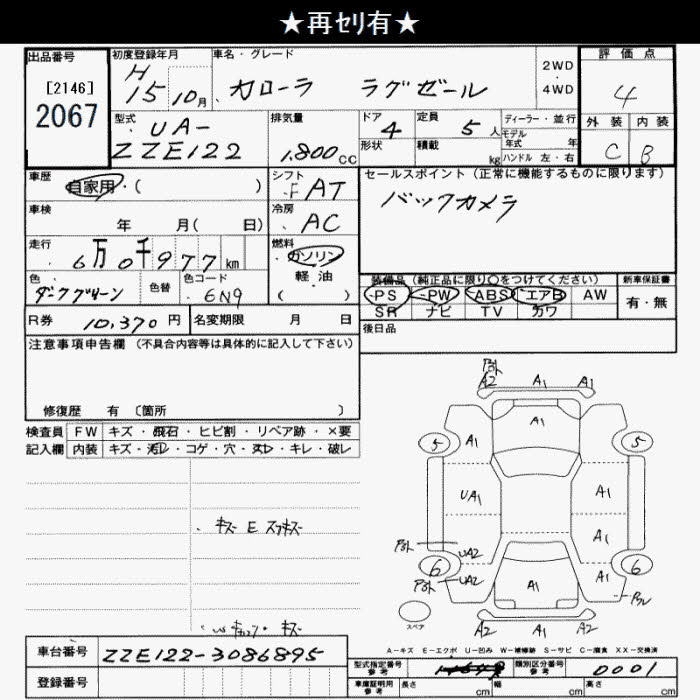 ★再セリ有★
出品番号
[2146]
2067
初度登録年月
H 15 10月
車名・グレード
カローラ ラグゼール
2WD
・
4WD
評価点
4
外装 内装
C B
型式
UA-
ZZE122
排気量
1,800cc
ドア
4
定員
5人
形状
積載
kg
ディーラー・並行
モデル
年式 年
ハンドル 左・右
車歴
自家用・( )
シフト
F AT
セールスポイント(正常に機能するものに限ります)
バックカメラ
車検
年 月( 日)
冷房
AC
走行
6万0千977km
燃料
ガソリン
軽油
( )
色
ダークグリーン
色替
色コード
6N9
装備品(純正品に限り○をつけてください)
新車保証書
PS PW ABS エアB AW
有・無
SR ナビ TV カワ
R券
10,370円
名変期限 月 日
後日品
注意事項申告欄(不具合内容等は具体的に記入して下さい)
修復歴 有〔箇所 〕
検査員
記入欄
FW キズ・飛石・ヒビ割・リペア跡・×要
内装 キズ・汚レ・コゲ・穴・ヌレ・キレ・破レ
A2 A1 A1
5 A1 A1 5
UA1 A1
A1
UA2
6 UA2 A1 A1 6
A2 A1 A1 A2
スペア
A-キズ E-エクボ U-凹み W-補修跡 S-サビ C-腐食 XX-交換済
車台番号
ZZE122-3086895
登録番号
型式指定番号
参考
類別区分番号
参考
0001
車庫証明用
参考
長さ cm
幅 cm
高さ cm